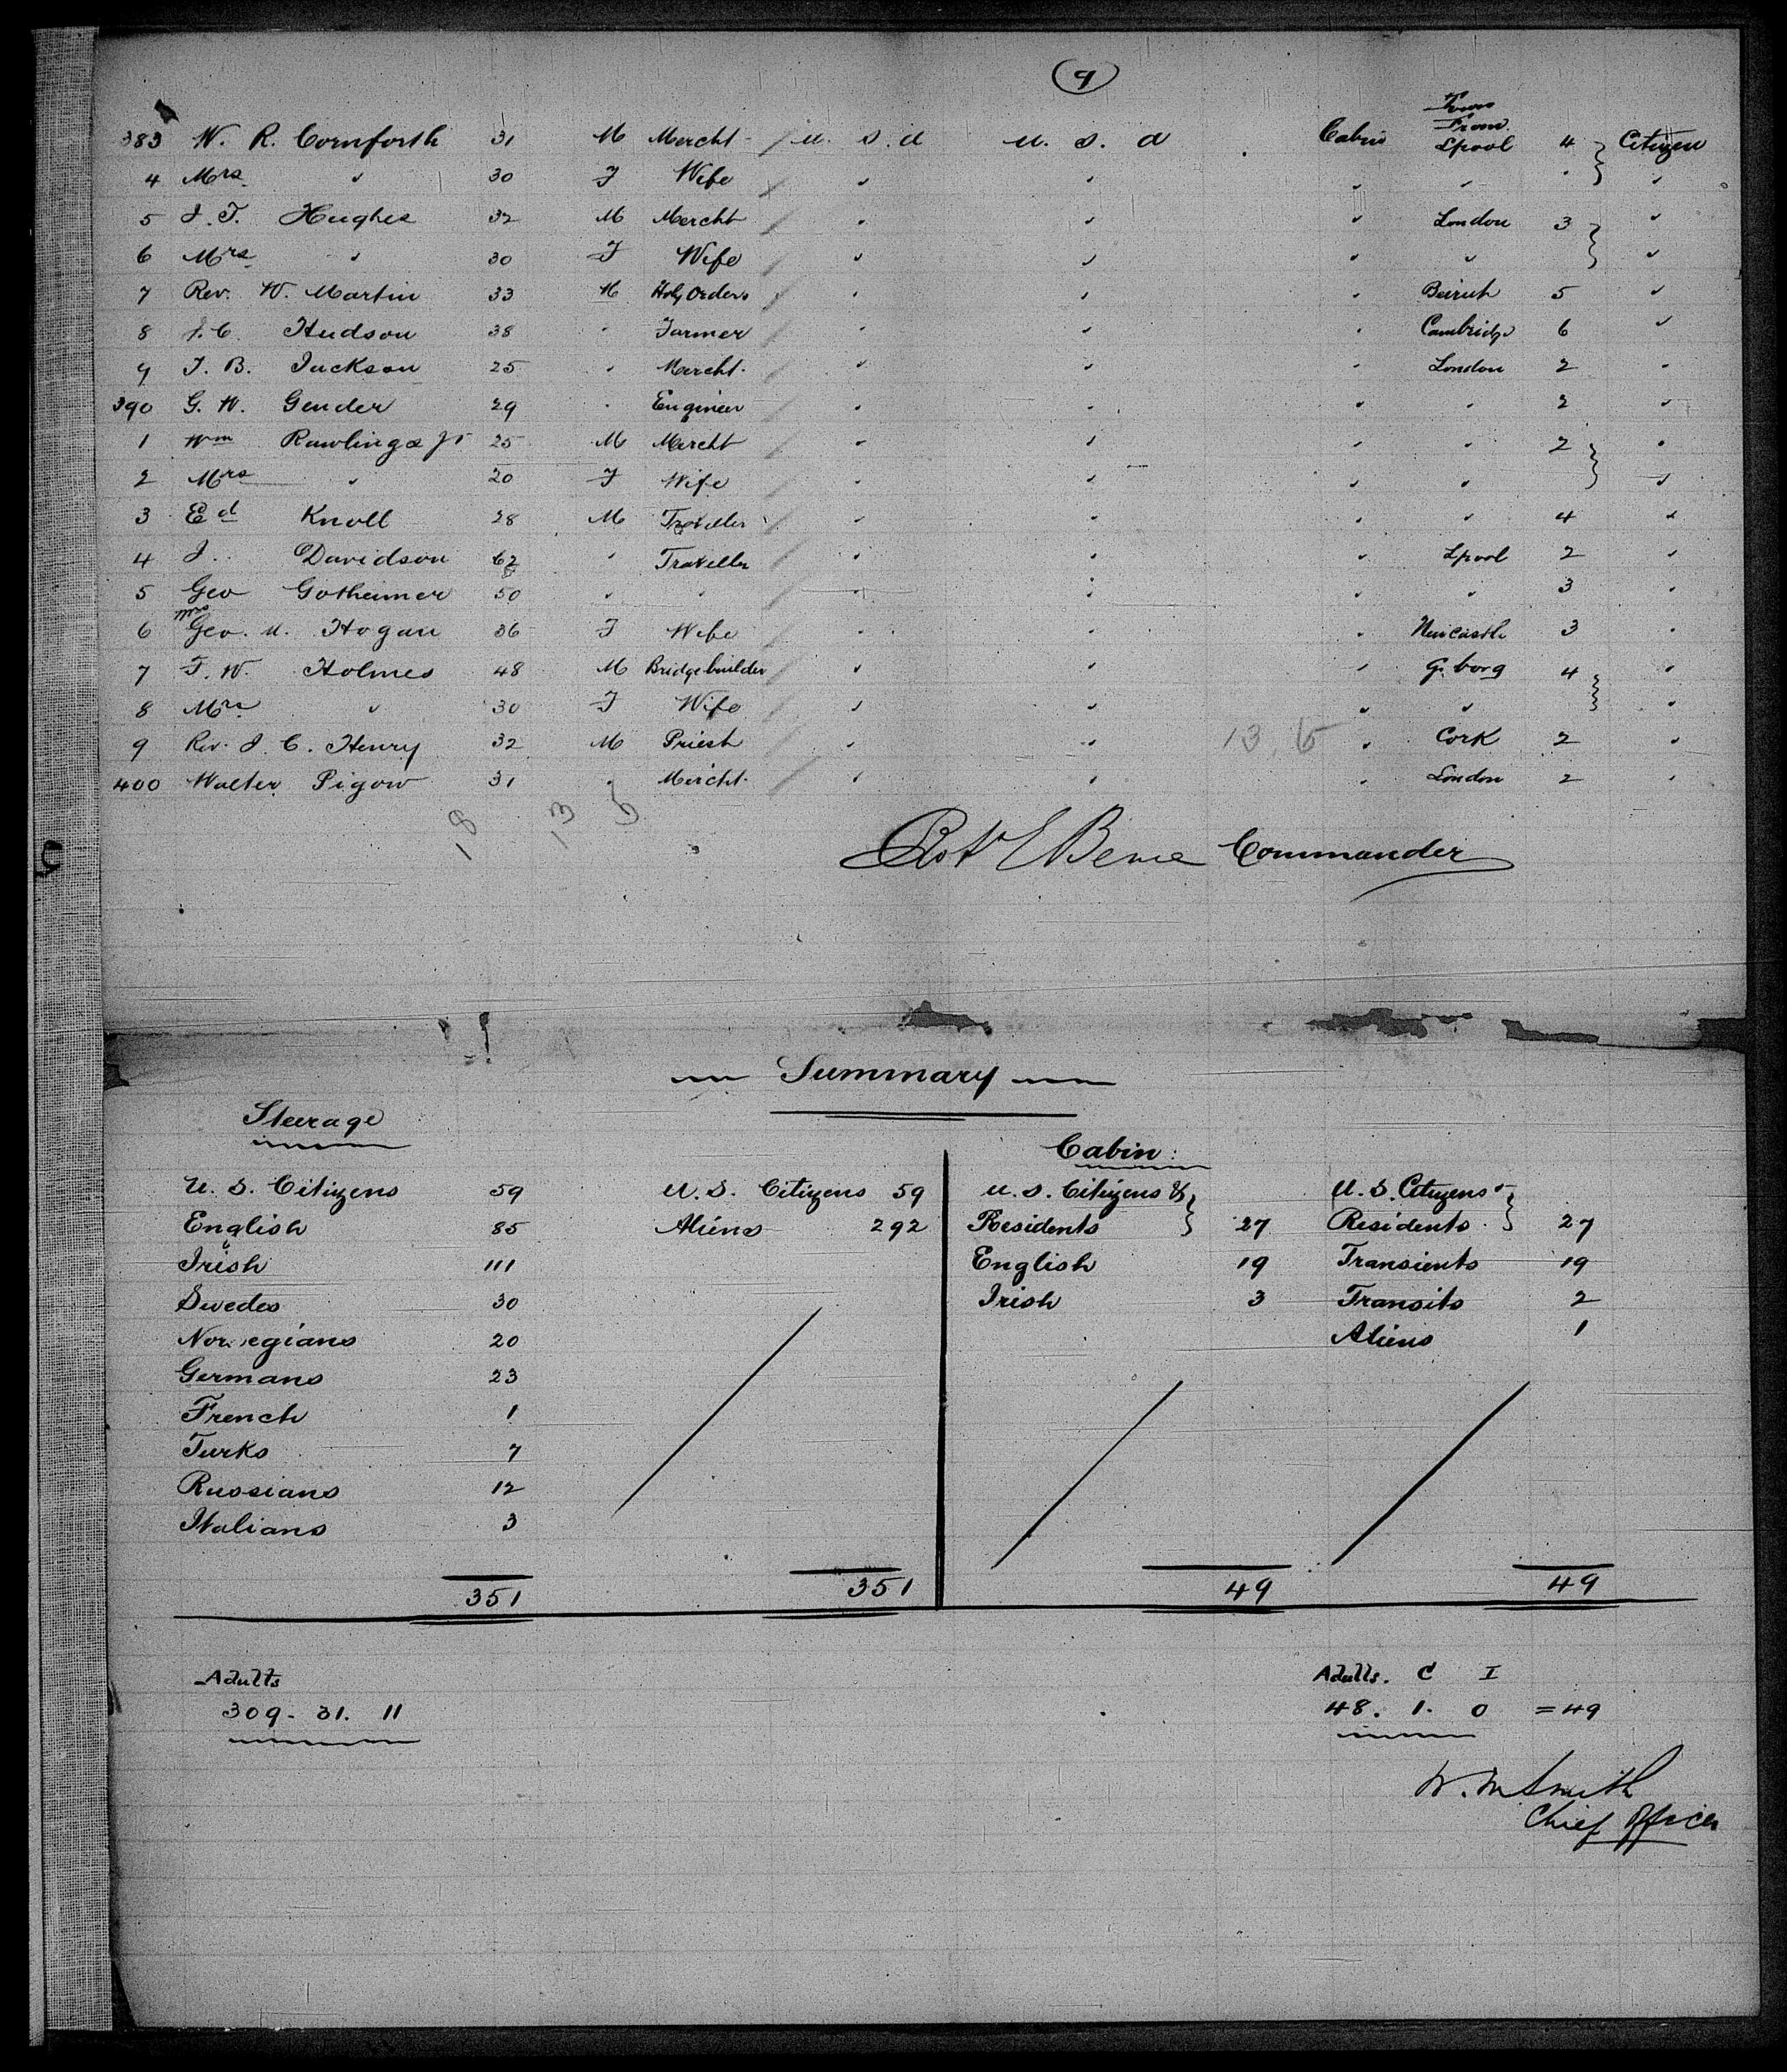 9
Town
From
383 W. R. Cornforth 31 M Mercht. U. S. A U. S. A Cabin Lpool 4 Citizen
4 Mrs " 30 F Wife " " " " " "
5 J. T. Hughes 32 M Mercht " " " London 3 "
6 Mrs " 30 F Wife " " " " "
7 Rev. W. Martin 33 M Holy Orders " " " Beirut 5 "
8 J. C. Hudson 38 " Farmer " " " Cambridge 6 "
9 J. B. Jackson 25 " Mercht. " " " London 2 "
390 G. W. Gender 29 " Engineer " " " " 2 "
1 Wm Rawlings Jr 25 M Mercht " " " " 2 "
2 Mrs " 20 F Wife " " " " "
3 Ed Knoll 28 M Traveller " " " " 4 "
4 J. Davidson 62 " Traveller " " " Lpool 2 "
5 Geo Gotheimer 50 " " " " " " 3 "
6 Mrs Geo. M. Hogan 36 F Wife " " " Newcastle 3 "
7 F. W. Holmes 48 M Bridgebuilder " " " G. borg 4 "
8 Mrs " 30 F Wife " " " " "
9 Rev. J. C. Henry 32 M Priest " " 13. 5 " Cork 2 "
400 Walter Pigow 31 " Mercht. " " " London 2 "
18 13 5
Commander
Summary
Steerage
Cabin:
U. S. Citizens 59 U. S. Citizens 59 U. S. Citizens & U. S. Citizens &
English 85 Aliens 292 Residents 27 Residents 27
Irish 111 English 19 Transients 19
Swedes 30 Irish 3 Transits 2
Norwegians 20 Aliens 1
Germans 23
French 1
Turks 7
Russians 12
Italians 3
351 351 49 49
Adults Adults. C I
309. 31. 11 48. 1. 0 = 49
W. M Smith
Chief Officer